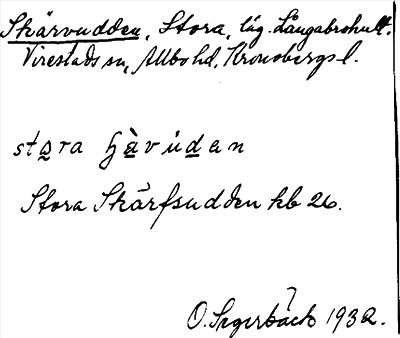 Skärvudden, Stora, läg. Långabrohult.
Virestads sn, Allbo hd, Kronobergs l.
stora ʃævúdan
Stora Skärfsudden hb 26.
O. Segerbäck 1932.